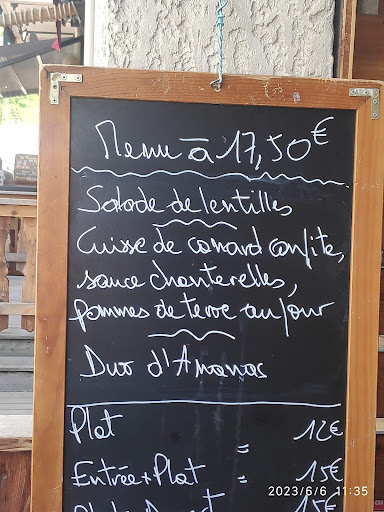 Menu à 17,50€
Salade de lentilles
Cuisse de canard confite,
sauce chanterelles,
pommes de terre au four
Duo d'Ananas
Plat = 12€
Entrée+Plat = 15€
15€
2023/6/6 11:35